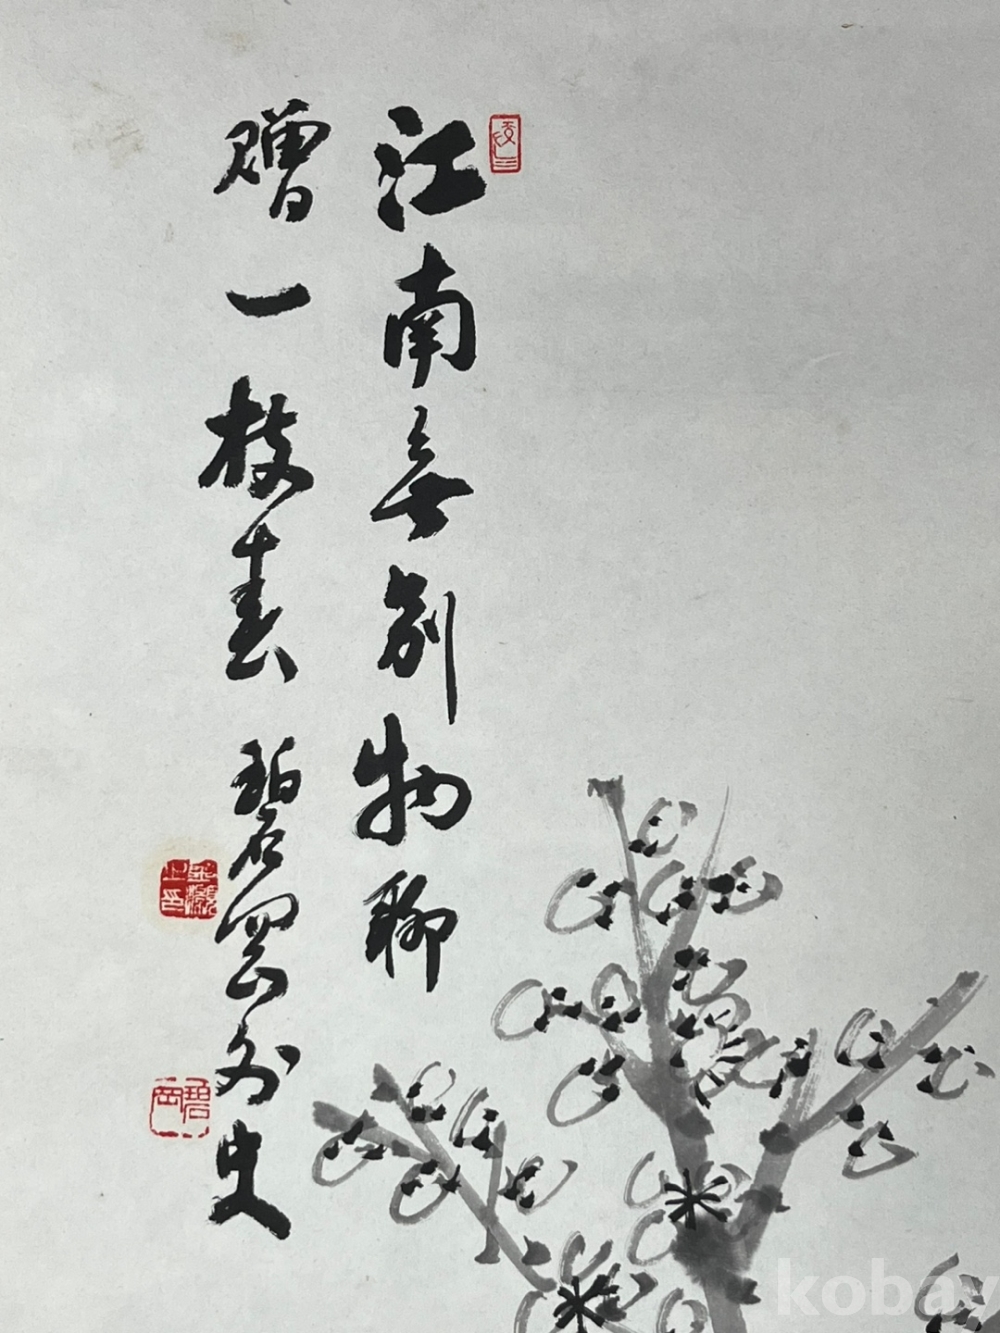 江南無別物聊
贈一枝春 碧岡外史
碧岡
kobay